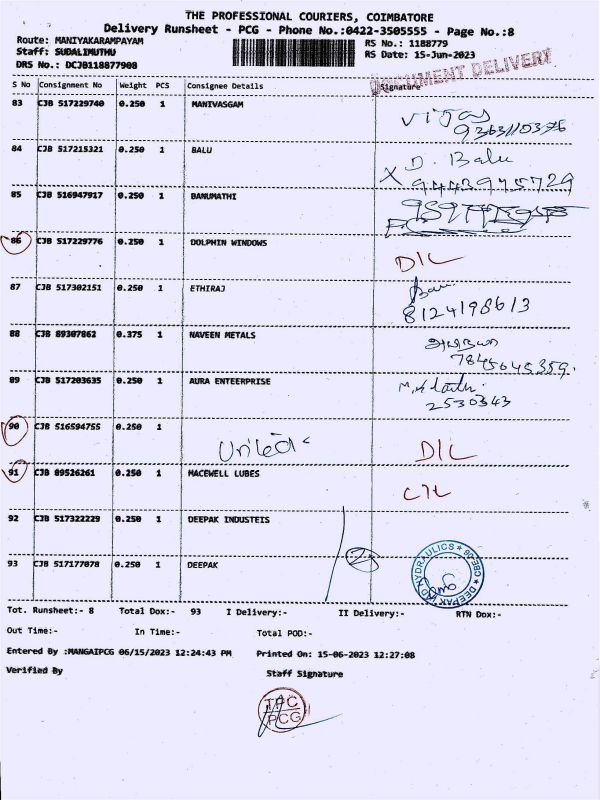 THE PROFESSIONAL COURIERS, COIMBATORE
Delivery Runsheet - PCG - Phone No.:0422-3505555 - Page No.:8
Route: MANIYAKARAMPAYAM RS No.: 1188779
Staff: SUDALIMUTHU RS Date: 15-Jun-2023
DRS No.: DCJB118877908
DOCUMENT DELIVERY
S No Consignment No Weight PCS Consignee Details Signature
83 CJB 517229740 0.250 1 MANIVASGAM
9363110376
84 CJB 517215321 0.250 1 BALU D. Balu
X 9443975729
85 CJB 516947917 0.250 1 BANUMATHI
86 CJB 517229776 0.250 1 DOLPHIN WINDOWS
D/L
87 CJB 517302151 0.250 1 ETHIRAJ
8124198613
88 CJB 89307862 0.375 1 NAVEEN METALS
7845645359.
89 CJB 517203635 0.250 1 AURA ENTEERPRISE
2530343
90 CJB 516594755 0.250 1
United D/L
91 CJB 89526261 0.250 1 MACEWELL LUBES
92 CJB 517322229 0.250 1 DEEPAK INDUSTEIS
93 CJB 517177078 0.250 1 DEEPAK
HYDRAULICS
DEEPAK
CBE-06
Tot. Runsheet:- 8 Total Dox:- 93 I Delivery:- II Delivery:- RTN Dox:-
Out Time:- In Time:- Total POD:-
Entered By :MANGAIPCG 06/15/2023 12:24:43 PM Printed On: 15-06-2023 12:27:08
Verified By Staff Signature
TPC
PCG